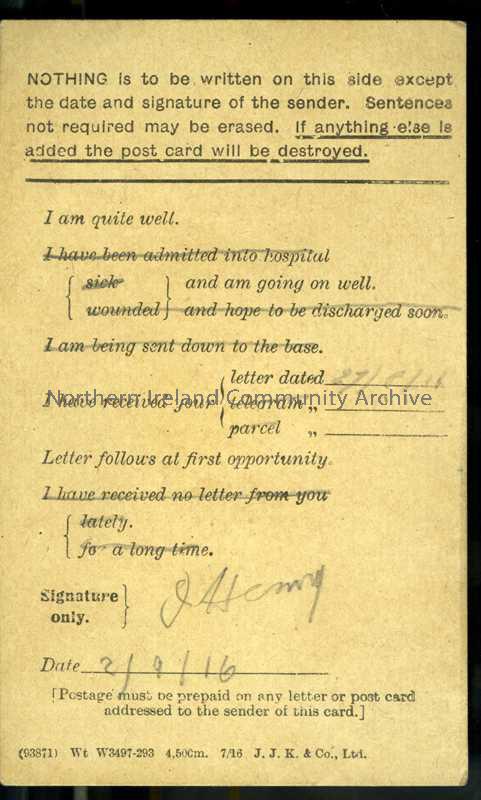 NOTHING is to be written on this side except
the date and signature of the sender. Sentences
not required may be erased. If anything else is
added the post card will be destroyed.
I am quite well.
I have been admitted into hospital
sick and am going on well.
wounded and hope to be discharged soon.
I am being sent down to the base.
letter dated
I have received your telegram „
Northern Ireland Community Archive
parcel „
Letter follows at first opportunity.
I have received no letter from you
lately.
for a long time.
Signature
only.
J Henry
Date 2/9/16
[Postage must be prepaid on any letter or post card
addressed to the sender of this card.]
(93871) Wt W3497-293 4,500m. 7/16 J. J. K. & Co., Ltd.